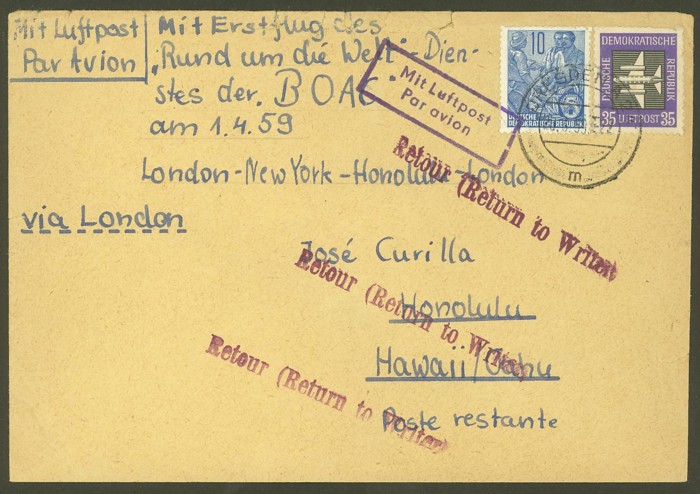 Mit Luftpost
Par Avion
Mit Erstflug des
„Rund um die Welt"-Dien-
stes der BOAC
am 1.4.59
London-New York-Honolulu-London
via London
Mit Luftpost
Par avion
10
DEUTSCHE
DEMOKRATISCHE REPUBLIK
DEUTSCHE
DEMOKRATISCHE
REPUBLIK
35 LUFTPOST 35
DRESDEN
m
Retour (Return to Writer)
José Curilla
Retour (Return to Writer)
Honolulu
Hawaii/Oahu
Retour (Return to Writer)
Poste restante